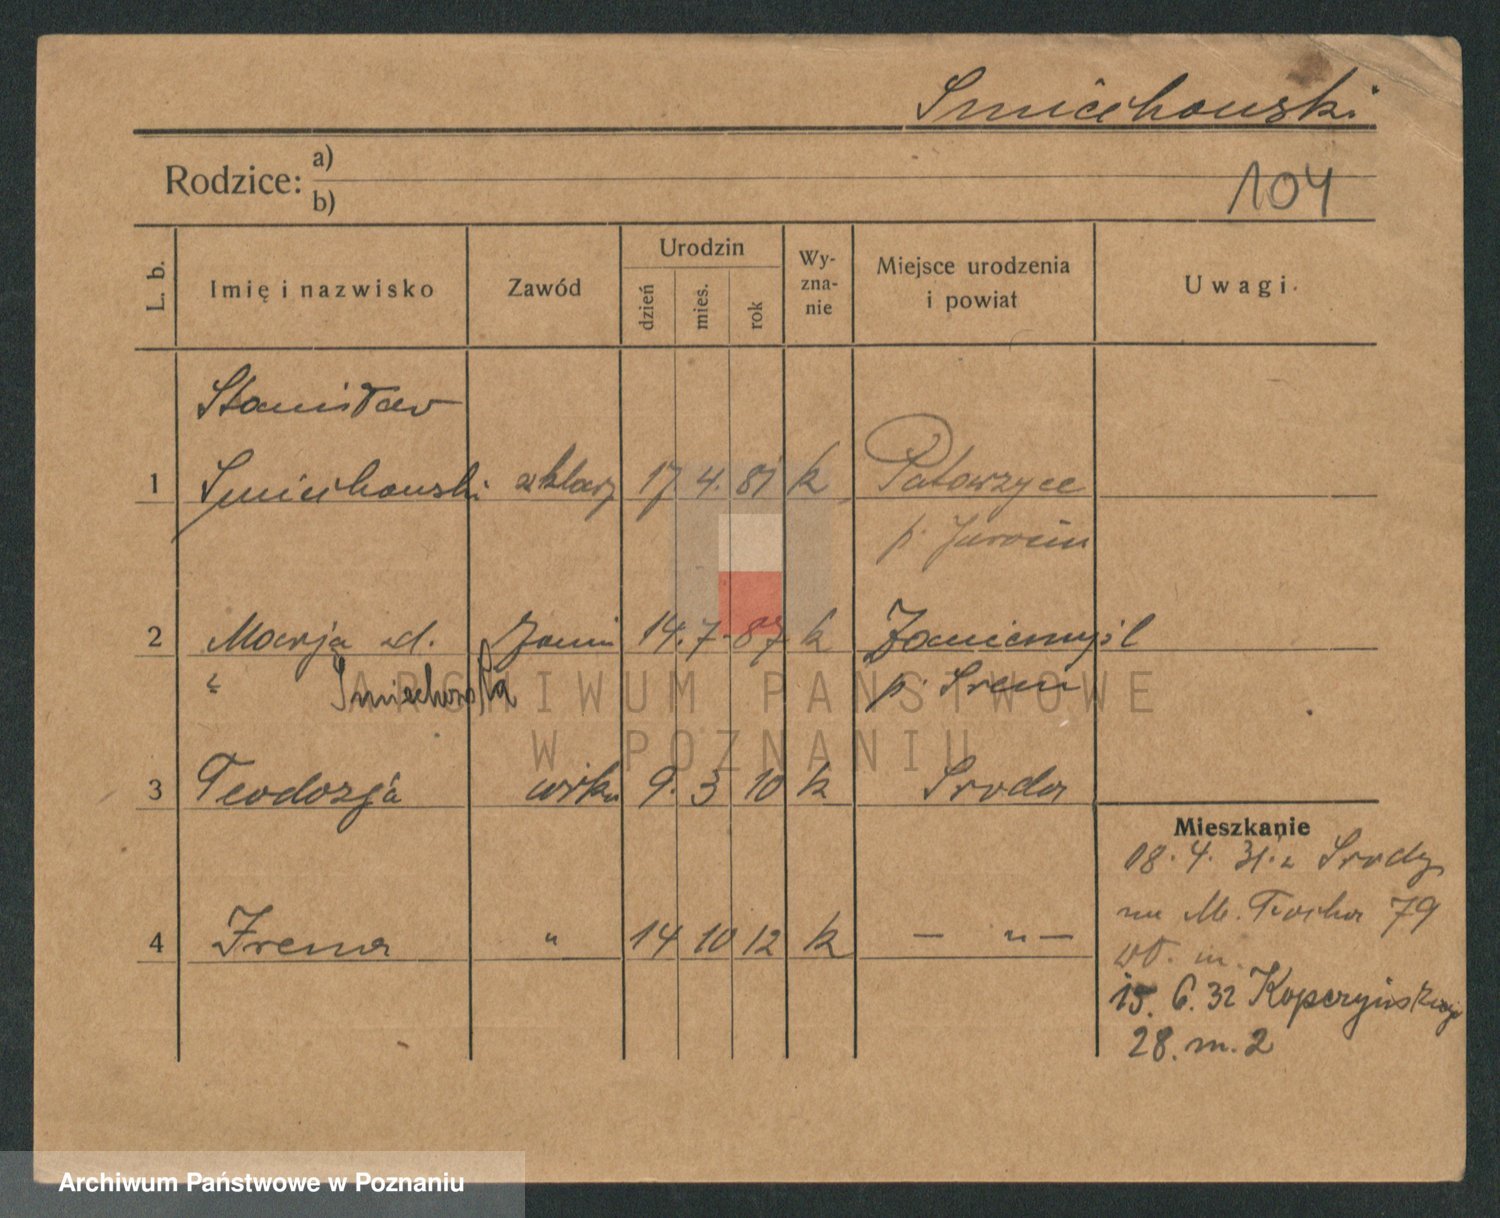 Smiechowski
Rodzice: a)
b)
104
L. b.
Imię i nazwisko
Zawód
Urodzin
dzień
mies.
rok
Wy-
zna-
nie
Miejsce urodzenia
i powiat
Uwagi
Stanisław
1 Smiechowski szklarz 17 4. 81 k Patorzyce
p. Jarocin
2 Marja d. 14. 7. 87 k Zaniemyśl
Smiechowska p. Srem
ARCHIWUM PAŃSTWOWE
W POZNANIU
3 Teodozja 9. 3 10 k Sroda
Mieszkanie
18. 4. 31. z Srody
na M. Focha 79
4 Irena " 14 10 12 k — " —
m.
15. 6. 32
28. m. 2
Archiwum Państwowe w Poznaniu